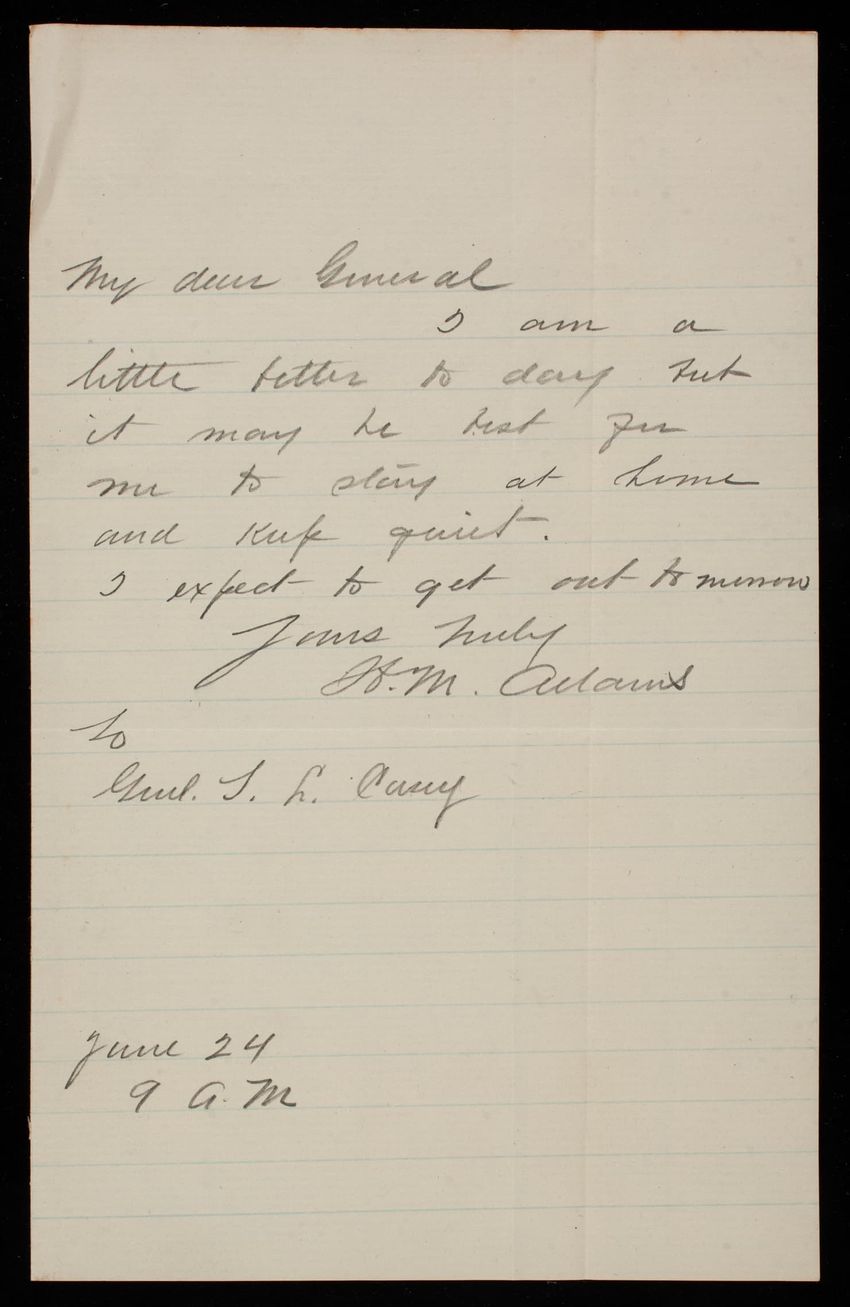 My dear General
I am a
little better to day but
it may be best for
me to stay at home
and keep quiet.
I expect to get out tomorrow
Yours truly
H. M. Adams
To
Genl. T. L. Casey
June 24
9 A.M